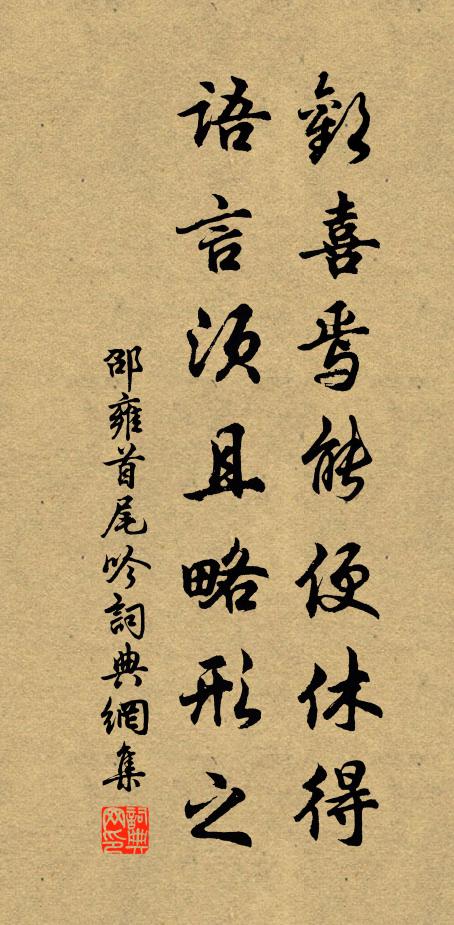 歡喜焉能便休得
語言須且略形之
邵雍首尾吟詞典網集
詞典网印